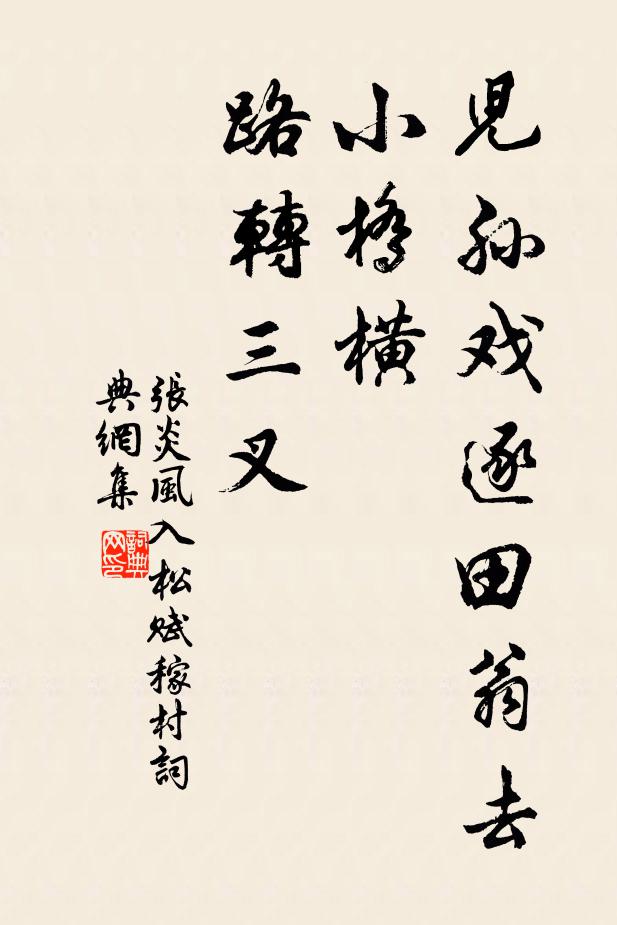 児孙戏逐田翁去
小橋横
路轉三叉
張炎風入松赋稼村詞
典網集
詞典网印